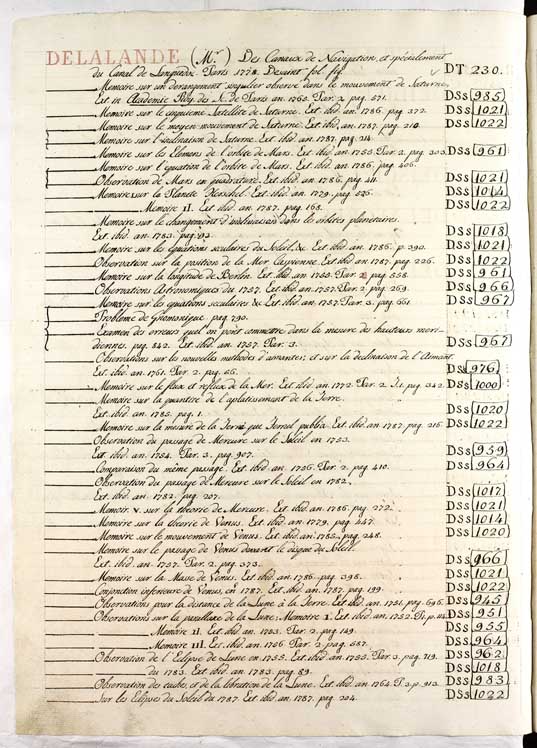 DELALANDE (Mr.) Des Canaux de Navigation, et spécialement
du Canal de Languedoc. Paris 1778. Devant fol. fig. DT 230.
Memoire sur un derangement singulier observé dans le mouvement de Saturne.
Ext in Academie Roy des S. de Paris an. 1765. Par. 2. pag. 571. DSs 985
Memoire sur le cinquieme Satellite de Saturne. Ext. ibid. an. 1786. pag. 372. DSs 1021
Memoire sur le moyen mouvement de Saturne. Ext. ibid. an. 1787. pag. 210. DSs 1022
Memoire sur l'inclinaison de Saturne. Ext. ibid. an. 1787. pag. 214.
Memoire sur les Elemens de l'orbite de Mars. Ext. ibid. an. 1755. Par. 2. pag. 303. DSs 961
Memoire sur l'equation de l'orbite de Mars. Ext. ibid. an. 1786. pag. 406.
Observation de Mars en quadrature. Ext. ibid. an. 1786. pag. 411. DSs 1021
Memoire sur la Planete Herschel. Ext. ibid. an. 1779. pag. 526. DSs 1014
Memoire II. Ext. ibid. an. 1787. pag. 168. DSs 1022
Memoire sur le changement d'inclinaison dans les orbites planetaires.
Ext. ibid. an. 1783. pag. DSs 1018
Memoire sur les équations seculaires du Soleil, &c. Ext. ibid. an. 1786. p. 390. DSs 1021
Observation sur la position de la Mer Caspienne. Ext. ibid. an. 1787. pag. 226. DSs 1022
Memoire sur la longitude de Berlin. Ext. ibid. an. 1755. Par. 2. pag. 558. DSs 961
Observations Astronomiques du 1757. Ext. ibid. an. 1757. Par. 2. pag. 269. DSs 966
Memoire sur les equations seculaires &c Ext. ibid. an. 1757. Par. 3. pag. 661. DSs 967
Probleme de Gnomonique pag. 790.
Examen des erreurs que l'on peut commetre dans la mesure des hauteurs meri-
diennes. pag. 842. Ext. ibid. an. 1757. Par. 3. DSs 967
Observations sur les nouvelles methodes d'aimanter; et sur la declinaison de l'Aimant.
Ext. ibid. an. 1761. Par. 2. pag. DSs 976
Memoire sur le flux et reflux de la Mer. Ext. ibid. an. 1772. Par. 2. pag. 342. DSs 1000
Memoire sur la quantité de l'aplatissement de la Terre.
Ext. ibid. an. 1785. pag. 1. DSs 1020
Memoire sur la mesure de la Terre que Fernel publia. Ext. ibid. an. 1787. pag. 216. DSs 1022
Observation du passage de Mercure sur le Soleil en 1753.
Ext. ibid. an. 1754. Par. 3. pag. 907. DSs 959
Comparaison du même passage. Ext. ibid. an. 1756. Par. 2. pag. 410. DSs 964
Observation du passage de Mercure sur le Soleil en 1782.
Ext. ibid. an. 1782. pag. 207. DSs 1017
Memoir V. sur la théorie de Mercure. Ext. ibid. an. 1786. pag. 272. DSs 1021
Memoire sur la theorie de Venus. Ext. ibid. an. 1779. pag. 447. DSs 1014
Memoire sur le mouvement de Venus. Ext. ibid. an. 1785. pag. 248. DSs 1020
Memoire sur le passage de Venus devant le disque du Soleil.
Ext. ibid. an. 1757. Par. 2. pag. 373. DSs 966
Memoire sur la Masse de Venus. Ext. ibid. an. 1786. pag. 398. DSs 1021
Conjonction inferieure de Venus, en 1787. Ext. ibid. an. 1787. pag. 199. DSs 1022
Observations pour la distance de la Lune à la Terre. Ext. ibid. an. 1751. pag. 695. DSs 945
Observations sur la parallaxe de la Lune: Memoire I. Ext. ibid. an. 1752. DSs 951
Memoire II. Ext. ibid. an. 1753. Par. 2. pag. 149. DSs 955
Memoire III. Ext. ibid. an. 1756 Par. 2. pag. 687. DSs 964
Observation de l'Eclipse de Lune en 1755. Ext. ibid. an. 1755. Par. 3. pag. 719. DSs 962
du 1783. Ext. ibid. an. 1783. pag. 89. DSs 1018
Observation des taches, et de la libration de la Lune. Ext. ibid. an. 1764. P. 3. p. 913. DSs 983
Sur les Eclipses du Soleil du 1787. Ext. ibid. an. 1787. pag. 204. DSs 1022